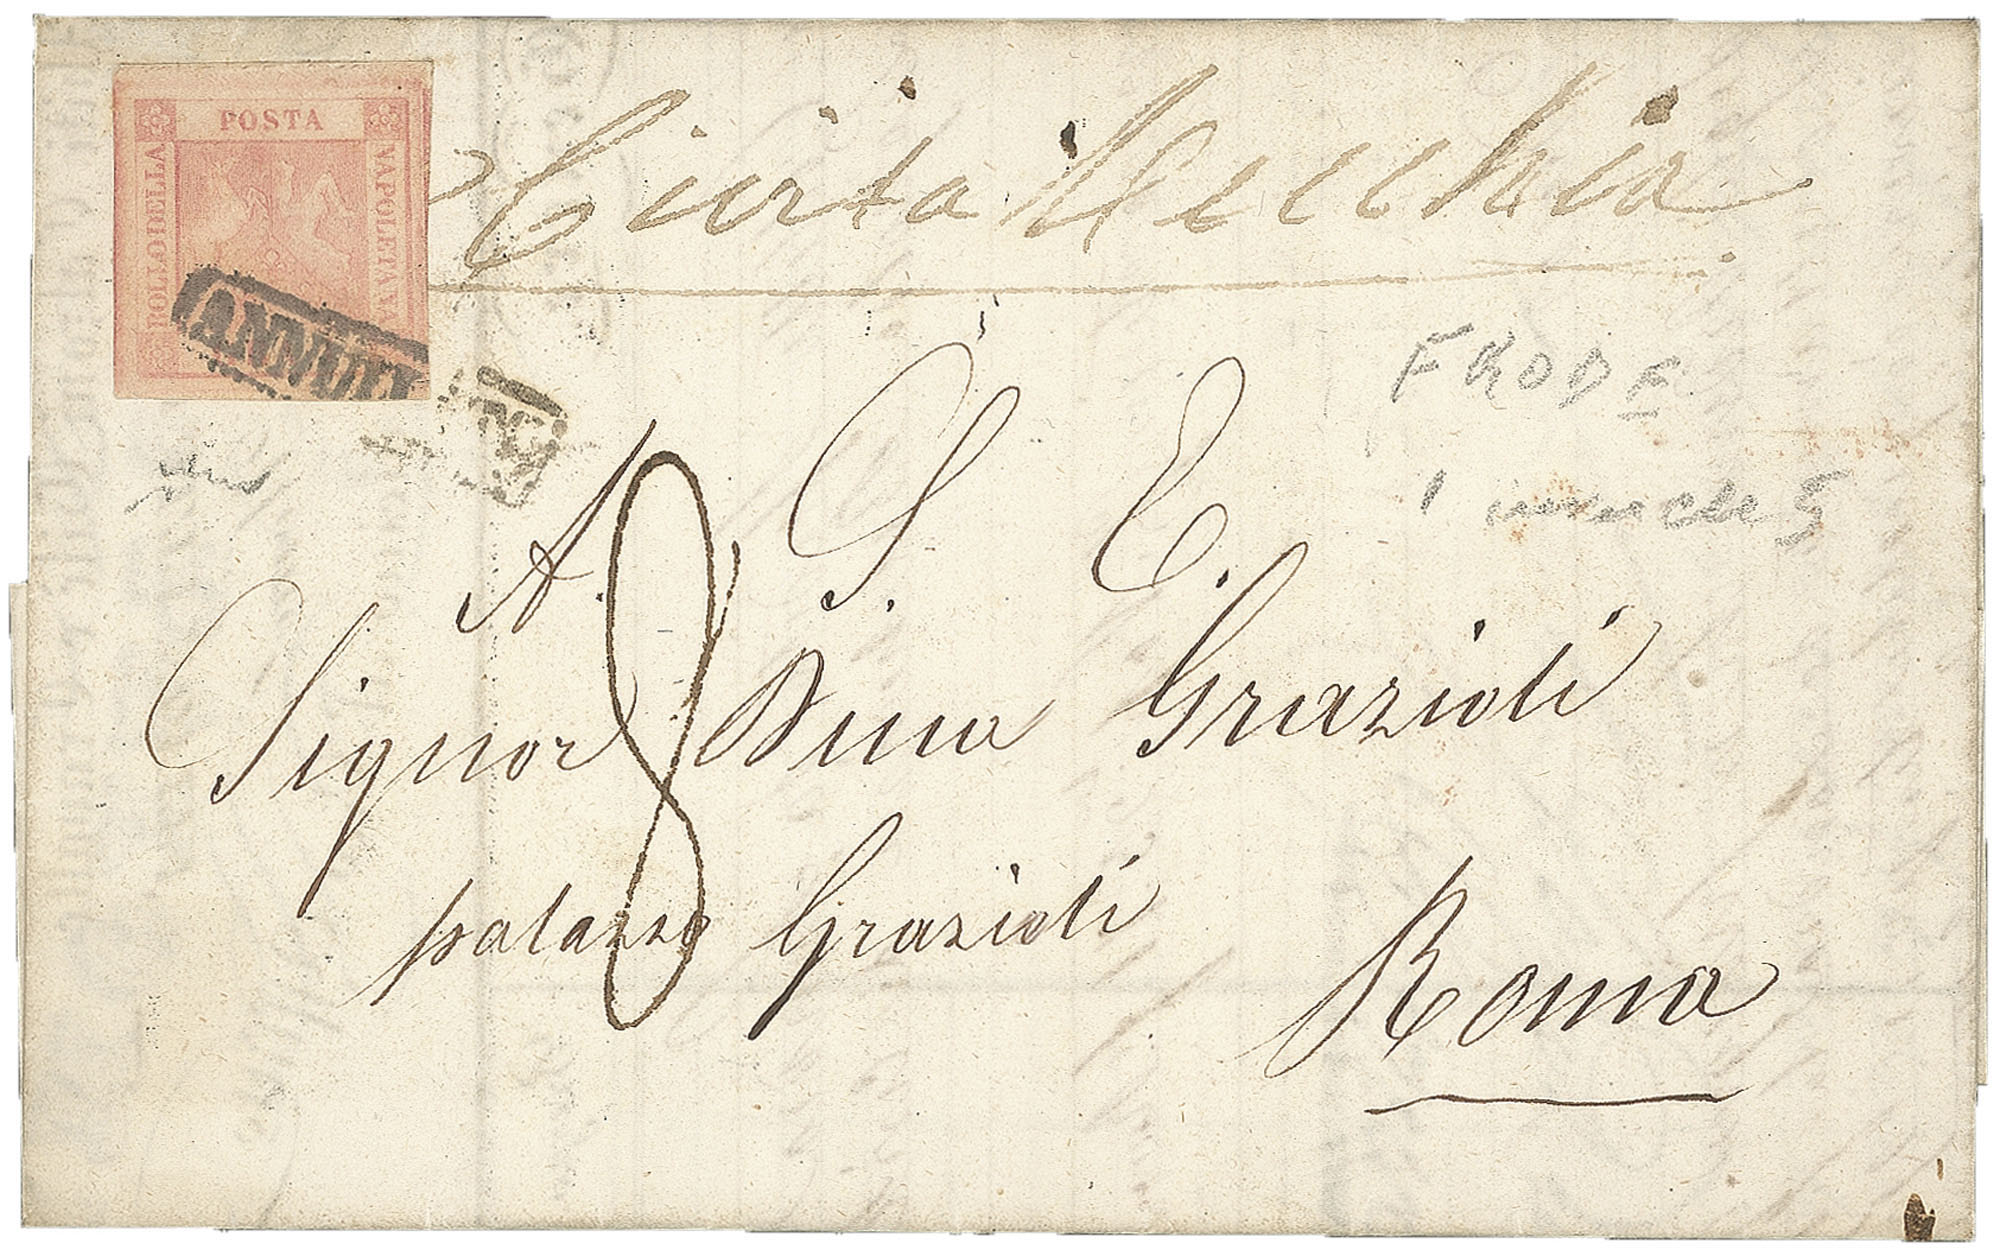 POSTA
BOLLO DELLA
NAPOLETANA
ANNULL
Civita Vecchia
FRODE
8
A. S. E.
Signor Duca Grazioli
palazzo Grazioli
Roma